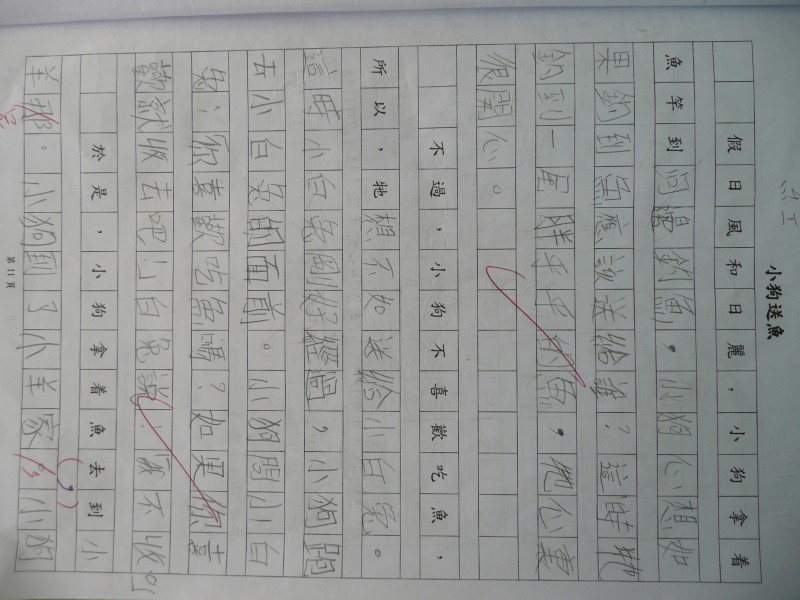 小狗送魚
假日風和日麗，小狗拿着
魚竿到河邊釣魚，小狗心想如
果釣到魚應該送給誰？這時牠
釣到一尾胖乎乎的魚，牠心裏
很開心。
不過，小狗不喜歡吃魚，
所以，牠想不如送給小白兔。
這時小白兔剛好經過，小狗跑
去小白兔的面前。小狗問小白
兔：你喜歡吃魚嗎？如果你喜
歡就收去吧！」白兔說：不收
於是，小狗拿着魚去到小
羊那。小狗到了小羊家，小狗
第11頁